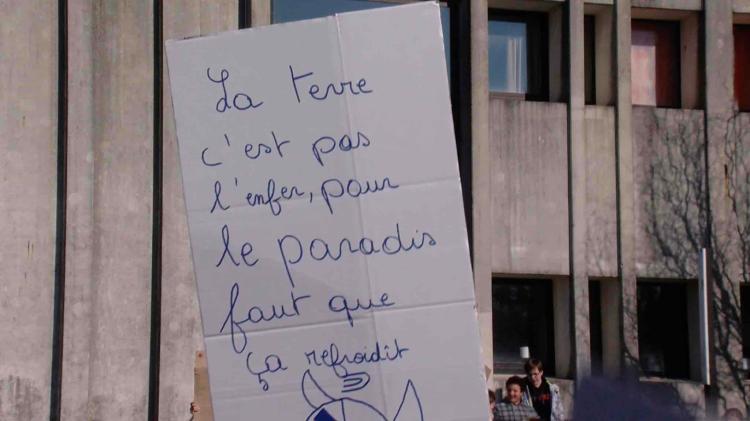 La terre
c'est pas
l'enfer, pour
le paradis
faut que
ça refroidit